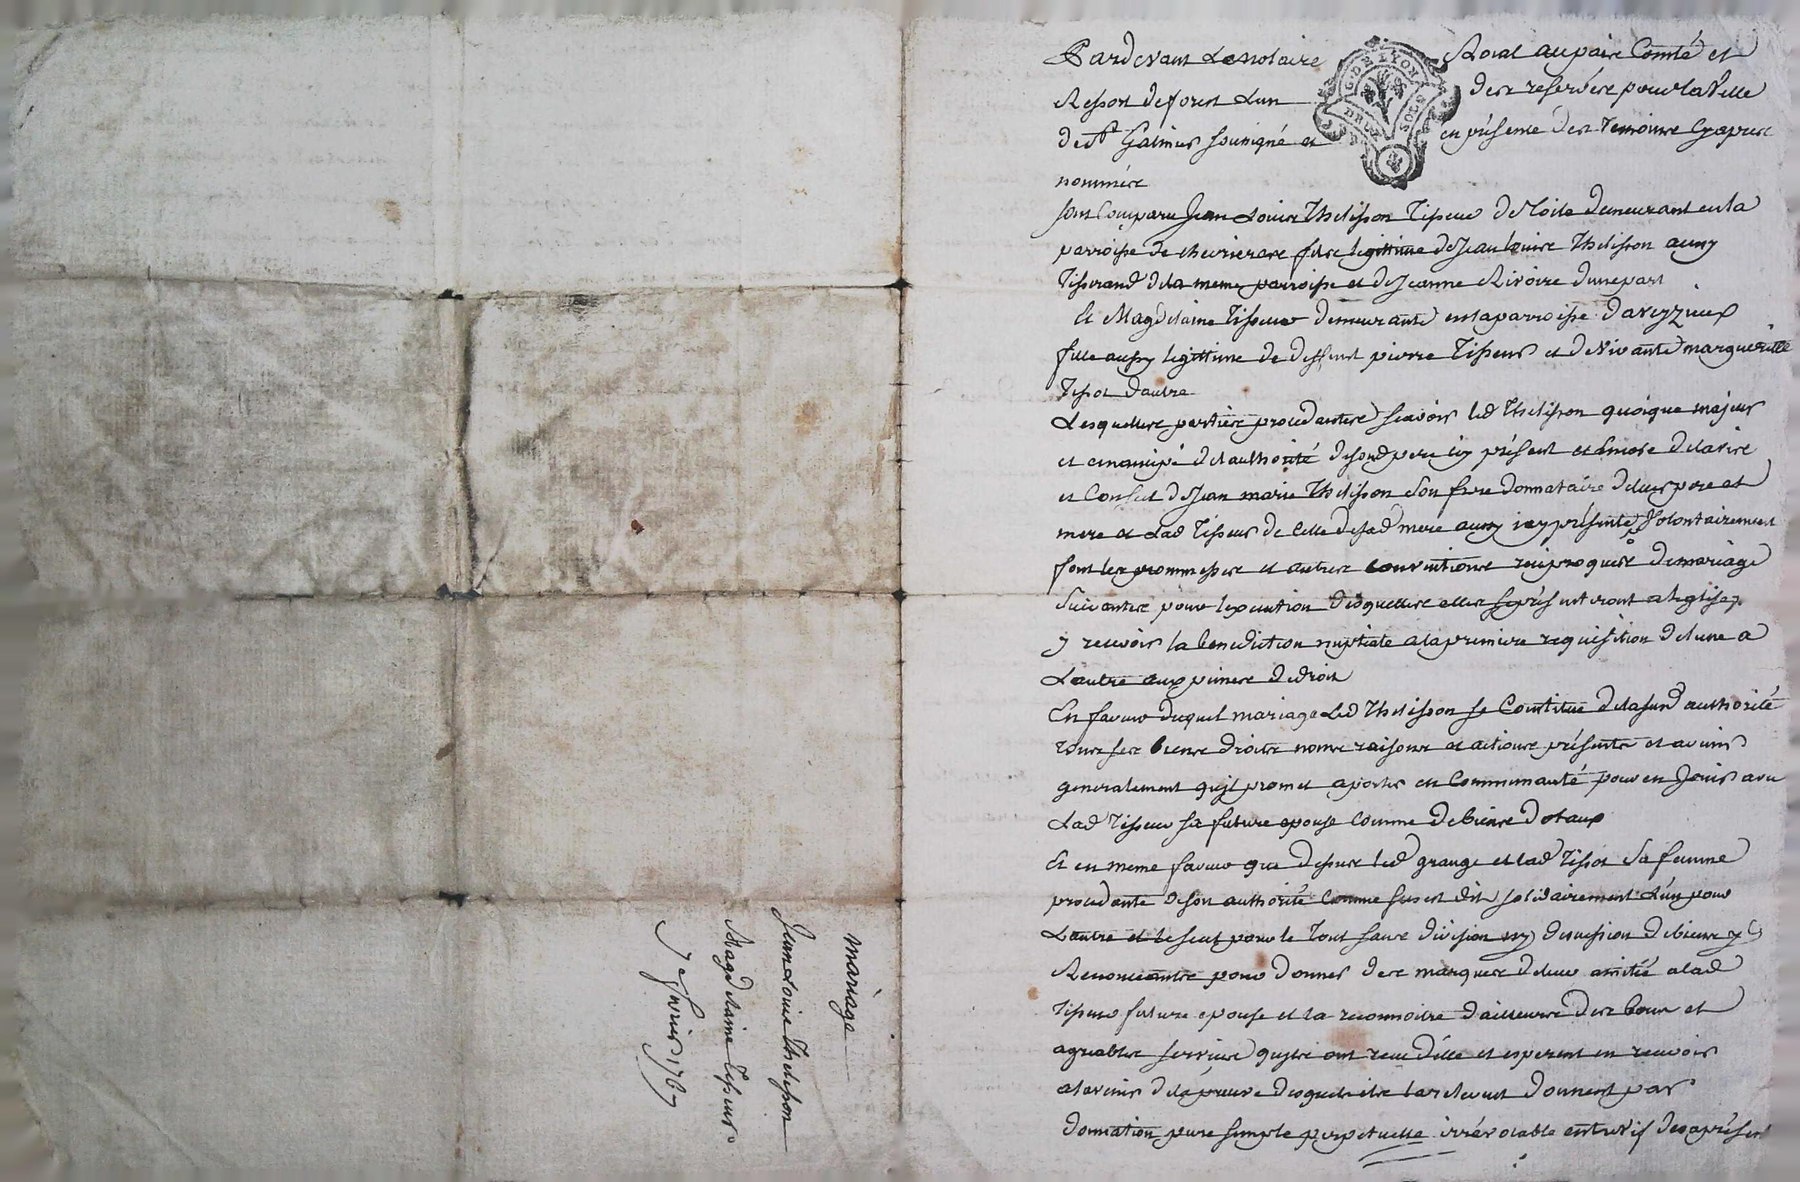 Pardevant Le notaire Roial au païs Comté et
Ressort de forest L'un des reservés pour la Ville
de St Galmier soussigné et en présence des Temoins cy apres
nommés
sont Comparu Jean Louis Thelisson Tisseur de Toile demeurant en la
parroisse de chevrieres fils legittime de Jean Louis Thelisson aussy
Tisserand de la meme parroisse et de Jeanne Rivoire d'une part
Et Magdelaine Tisseur demeurante en la parroisse d'aveyzieux
fille aussy legittime de deffunt pierre Tisseur et de vivante marguerite
Tissot d'autre
Lesquelles parties procedantes scavoir led Thelisson quoique majeur
et emancipé de l'authorité de sond pere icy présent et encore de l'avis
et Conseil de Jean marie Thelisson son frere donnataire de leurs pere et
mere et Lad Tisseur de celle de sad mere aussy icy présente Volontairement
font les promesses et autres conventions reciproques de mariage
suivantes pour l'execution desquelles elles se présenteront a l'eglise
y recevoir la benediction nuptiale a la premiere requisition de l'une a
L'autre aux peines de droit
En faveur duquel mariage Led Thelisson se Constitue de la susd authorité
tous ses biens droits noms raisons et actions présents et avenir
generalement qu'il promet aporter en Communauté pour en Jouir avec
Lad Tisseur sa future epouse comme de biens dotaux
Et en meme faveur que dessus led grange et lad Tissot sa femme
procedante de son authorité comme sus est dit solidairement L'un pour
L'autre et le seul pour le Tout sans division ny discussion de biens
Renonceants pour donner des marques de leur amitié a lad
Tisseur future epouse et la reconnoitre d'ailleurs des bons et
agreables services qu'ils ont receu d'elle et esperent en recevoir
a l'avenir de la preuve desquels ils la relevent donnent par
donnation pure simple perpetuelle irrévocable entrevifs des a présent
mariage
Jean Louis Thelisson
Magdelaine Tisseur
7e fevrier 1767
G. DE LYON
DEUX SOLS